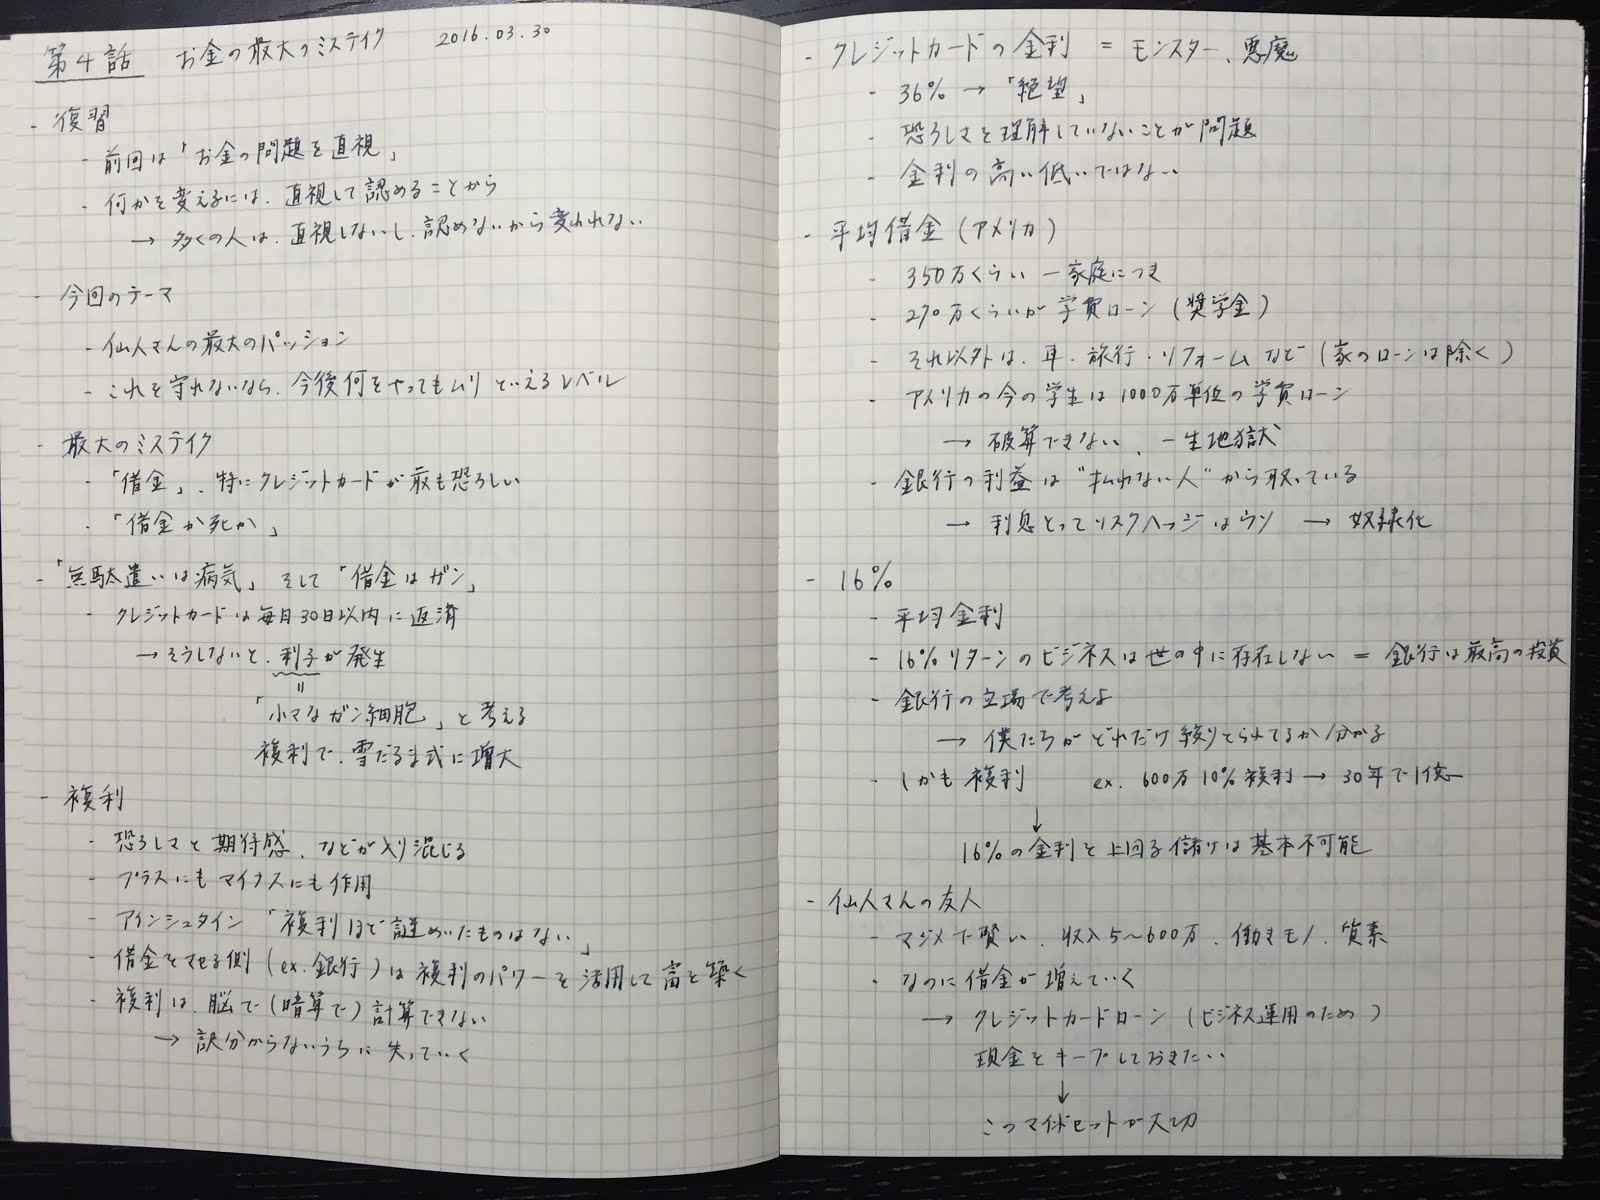 第4話 お金の最大のミステイク 2016.03.30
- 復習
- 前回は「お金の問題を直視」
- 何かを変えるには、直視して認めることから
→ 多くの人は、直視しないし、認めないから変われない
- 今回のテーマ
- 仙人さんの最大のパッション
- これを守れないなら、今後何をやってもムリといえるレベル
- 最大のミステイク
- 「借金」、特にクレジットカードが最も恐ろしい
- 「借金か死か」
- 「無駄遣いは病気」そして「借金はガン」
- クレジットカードは毎月30日以内に返済
→ そうしないと、利子が発生
=
「小さなガン細胞」と考える
複利で、雪だるま式に増大
- 複利
- 恐ろしさと期待感、などが入り混じる
- プラスにもマイナスにも作用
- アインシュタイン「複利ほど謎めいたものはない」
- 借金をさせる側(ex.銀行)は複利のパワーを活用して富を築く
- 複利は、脳で(暗算で)計算できない
→ 訳分からないうちに失っていく
- クレジットカードの金利 = モンスター、悪魔
- 36% → 「絶望」
- 恐ろしさを理解していないことが問題
- 金利の高い低いではない
- 平均借金(アメリカ)
- 350万くらい 一家庭につき
- 270万くらいが学費ローン(奨学金)
- それ以外は、車・旅行・リフォームなど(家のローンは除く)
- アメリカの今の学生は1000万単位の学費ローン
→ 破算できない、一生地獄
- 銀行の利益は"払れない人"から取っている
→ 利息とってリスクヘッジはウソ → 奴隷化
- 16%
- 平均金利
- 16%リターンのビジネスは世の中に存在しない = 銀行は最高の投資
- 銀行の立場で考えよ
→ 僕たちがどれだけ絞りとられてるか分かる
- しかも複利 ex. 600万 10%複利 → 30年で1億
↓
16%の金利を上回る儲けは基本不可能
- 仙人さんの友人
- マジメで賢い、収入5〜600万、働きモノ、質素
- なのに借金が増えていく
→ クレジットカードローン(ビジネス運用のため)
現金をキープしておきたい
↓
このマインドセットが大切